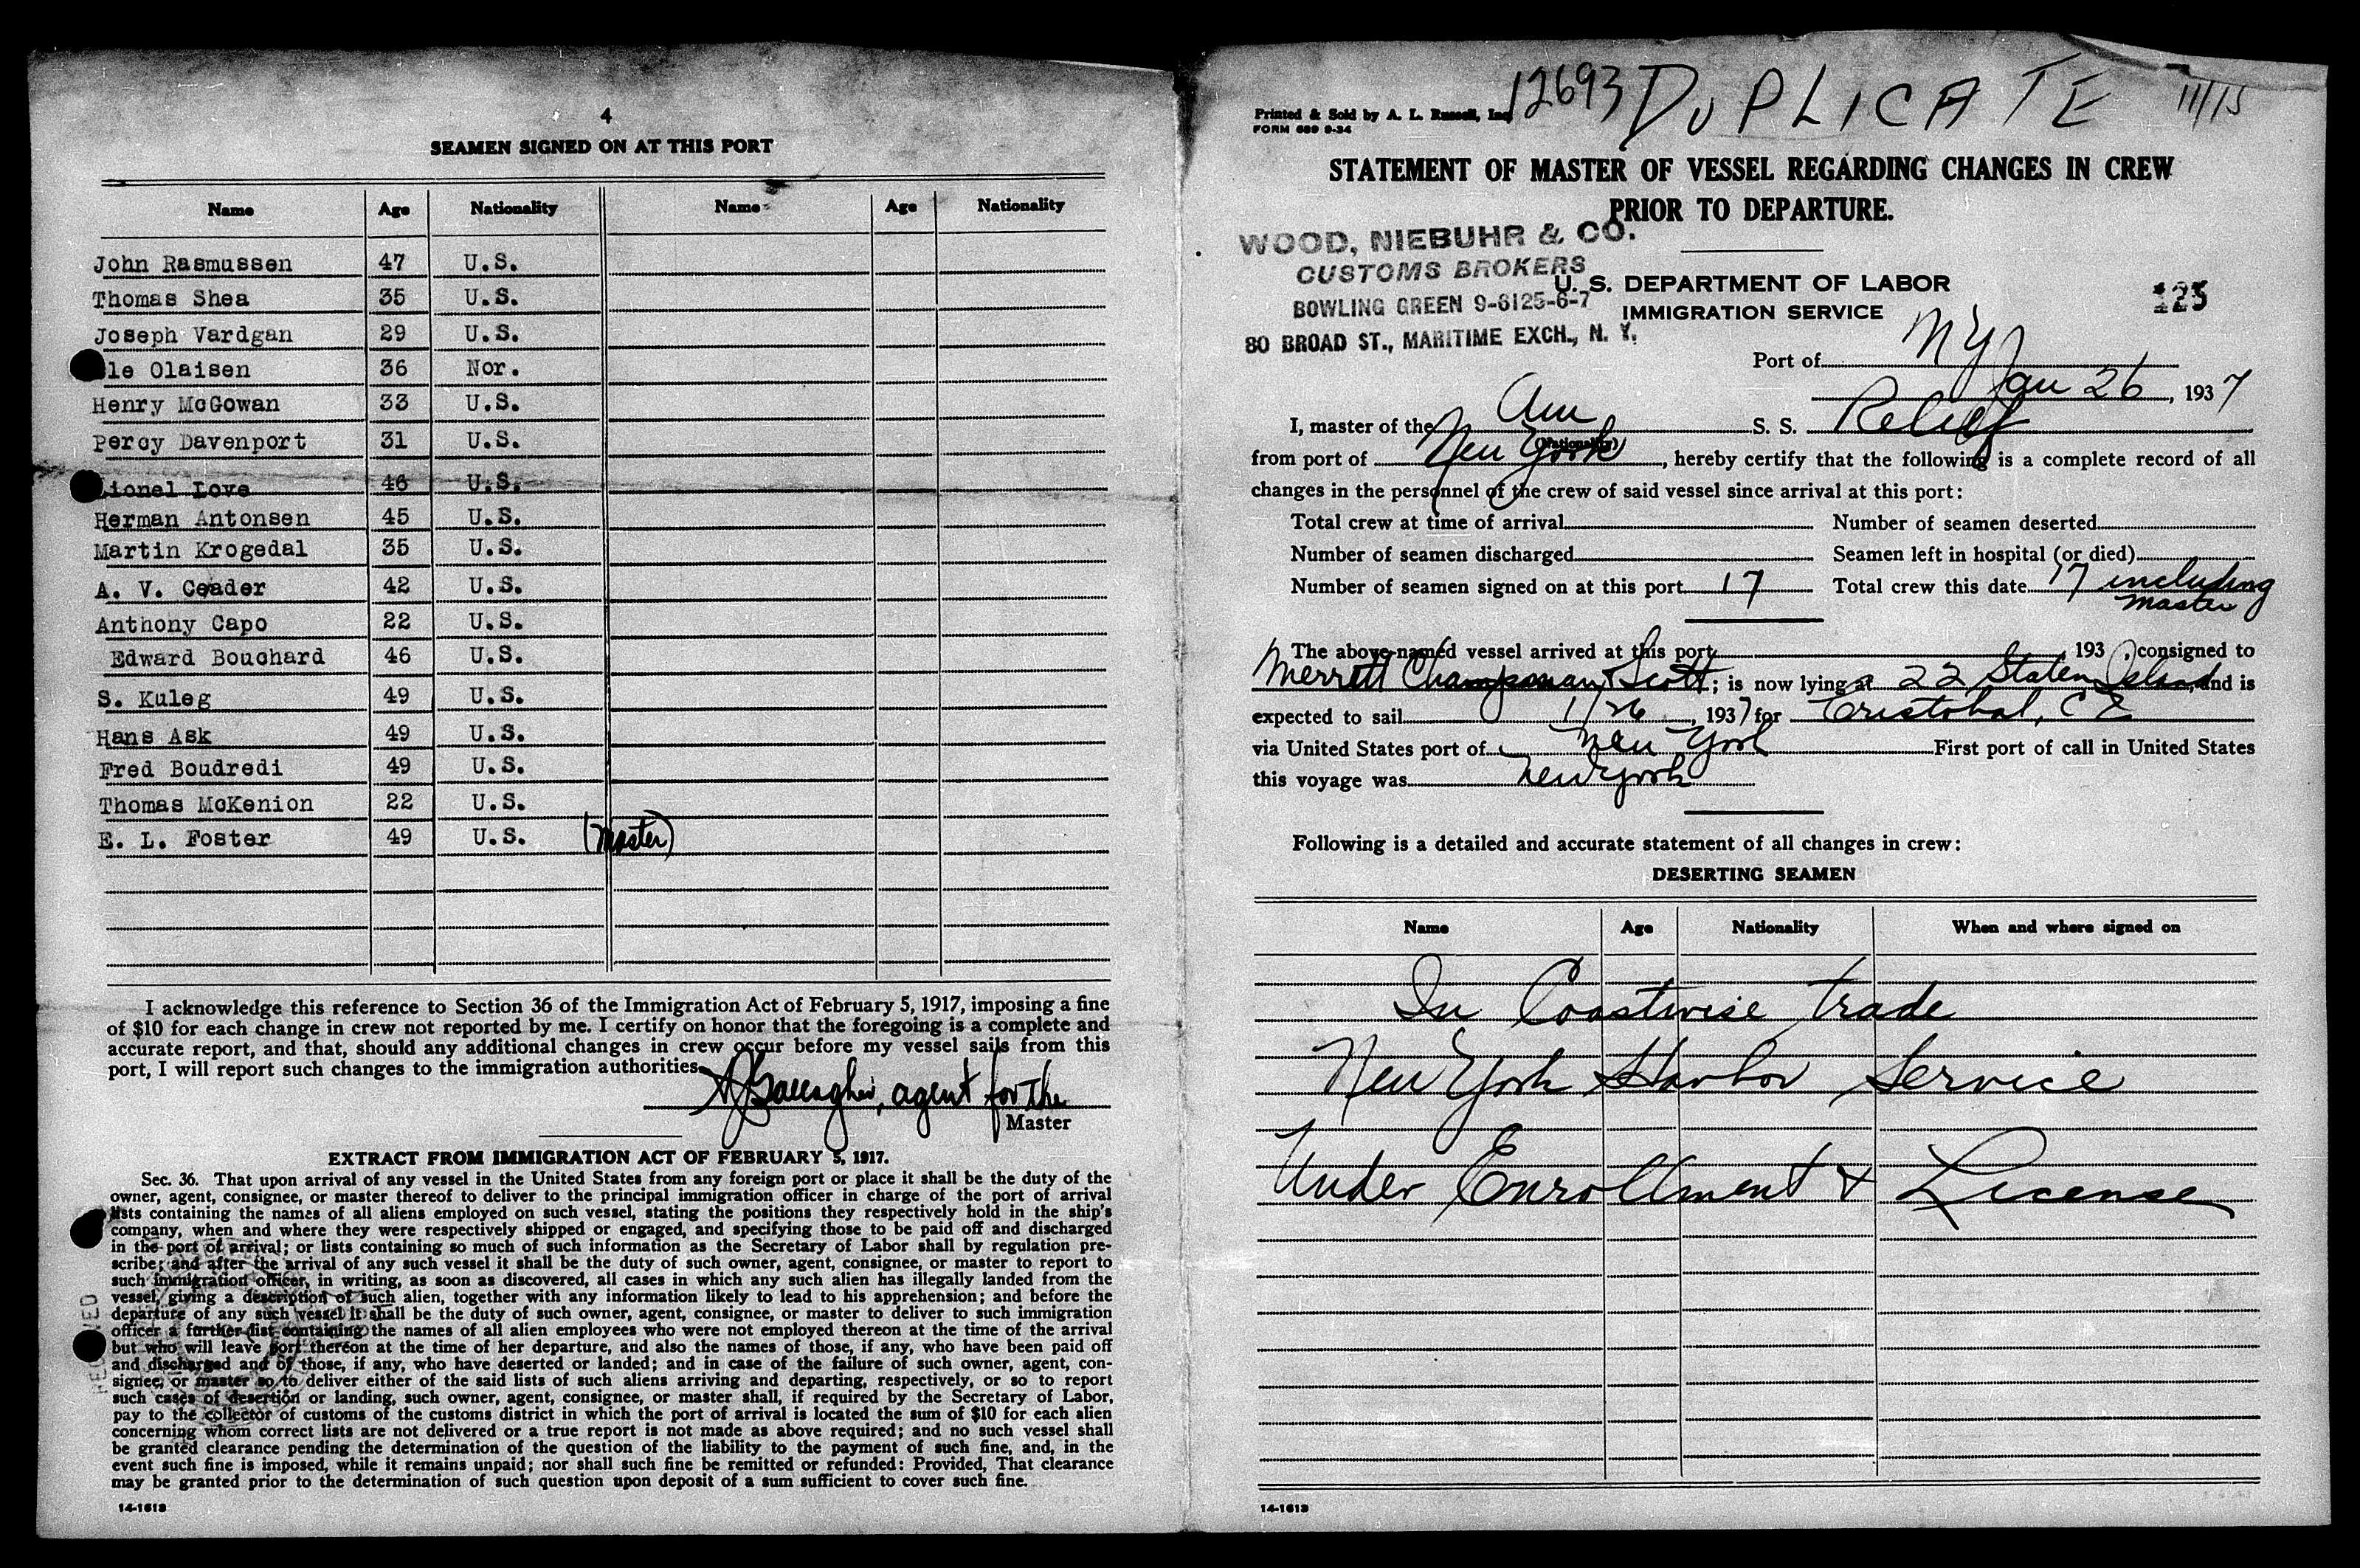 4
SEAMEN SIGNED ON AT THIS PORT
Name Age Nationality Name Age Nationality
John Rasmussen 47 U.S.
Thomas Shea 35 U.S.
Joseph Vardgan 29 U.S.
le Olaisen 36 Nor.
Henry McGowan 33 U.S.
Percy Davenport 31 U.S.
Lionel Love 46 U.S.
Herman Antonsen 45 U.S.
Martin Krogedal 35 U.S.
A. V. Ceader 42 U.S.
Anthony Capo 22 U.S.
Edward Bouchard 46 U.S.
S. Kuleg 49 U.S.
Hans Ask 49 U.S.
Fred Boudredi 49 U.S.
Thomas McKenion 22 U.S.
E. L. Foster 49 U.S. (Master)
I acknowledge this reference to Section 36 of the Immigration Act of February 5, 1917, imposing a fine
of $10 for each change in crew not reported by me. I certify on honor that the foregoing is a complete and
accurate report, and that, should any additional changes in crew occur before my vessel sails from this
port, I will report such changes to the immigration authorities.
AJ Gallagher, agent for the
Master
EXTRACT FROM IMMIGRATION ACT OF FEBRUARY 5, 1917.
Sec. 36. That upon arrival of any vessel in the United States from any foreign port or place it shall be the duty of the
owner, agent, consignee, or master thereof to deliver to the principal immigration officer in charge of the port of arrival
lists containing the names of all aliens employed on such vessel, stating the positions they respectively hold in the ship's
company, when and where they were respectively shipped or engaged, and specifying those to be paid off and discharged
in the port of arrival; or lists containing so much of such information as the Secretary of Labor shall by regulation pre-
scribe; and after the arrival of any such vessel it shall be the duty of such owner, agent, consignee, or master to report to
such immigration officer, in writing, as soon as discovered, all cases in which any such alien has illegally landed from the
vessel, giving a description of such alien, together with any information likely to lead to his apprehension; and before the
departure of any such vessel it shall be the duty of such owner, agent, consignee, or master to deliver to such immigration
officer a further list containing the names of all alien employees who were not employed thereon at the time of the arrival
but who will leave port thereon at the time of her departure, and also the names of those, if any, who have been paid off
and discharged and of those, if any, who have deserted or landed; and in case of the failure of such owner, agent, con-
signee, or master so to deliver either of the said lists of such aliens arriving and departing, respectively, or so to report
such cases of desertion or landing, such owner, agent, consignee, or master shall, if required by the Secretary of Labor,
pay to the collector of customs of the customs district in which the port of arrival is located the sum of $10 for each alien
concerning whom correct lists are not delivered or a true report is not made as above required; and no such vessel shall
be granted clearance pending the determination of the question of the liability to the payment of such fine, and, in the
event such fine is imposed, while it remains unpaid; nor shall such fine be remitted or refunded: Provided, That clearance
may be granted prior to the determination of such question upon deposit of a sum sufficient to cover such fine.
14-1613
Printed & Sold by A. L. Russell, Inc. 12693 DUPLICATE 11/15
FORM 689 9-34
STATEMENT OF MASTER OF VESSEL REGARDING CHANGES IN CREW
PRIOR TO DEPARTURE.
WOOD, NIEBUHR & CO.
CUSTOMS BROKERS
BOWLING GREEN 9-6125-6-7
80 BROAD ST., MARITIME EXCH., N. Y.
U. S. DEPARTMENT OF LABOR
IMMIGRATION SERVICE
125
Port of NY
Jan 26, 1937
I, master of the Am S. S. Relief
(Nationality)
from port of New York, hereby certify that the following is a complete record of all
changes in the personnel of the crew of said vessel since arrival at this port:
Total crew at time of arrival Number of seamen deserted
Number of seamen discharged Seamen left in hospital (or died)
Number of seamen signed on at this port 17 Total crew this date 17 including
master
The above-named vessel arrived at this port 193 consigned to
Merritt Chapman & Scott; is now lying at 22 Staten Island, and is
expected to sail 1/26, 1937 for Cristobal, C Z
via United States port of New York First port of call in United States
this voyage was New York
Following is a detailed and accurate statement of all changes in crew:
DESERTING SEAMEN
Name Age Nationality When and where signed on
In Coastwise trade
New York Harbor Service
Under Enrollment & License
14-1613